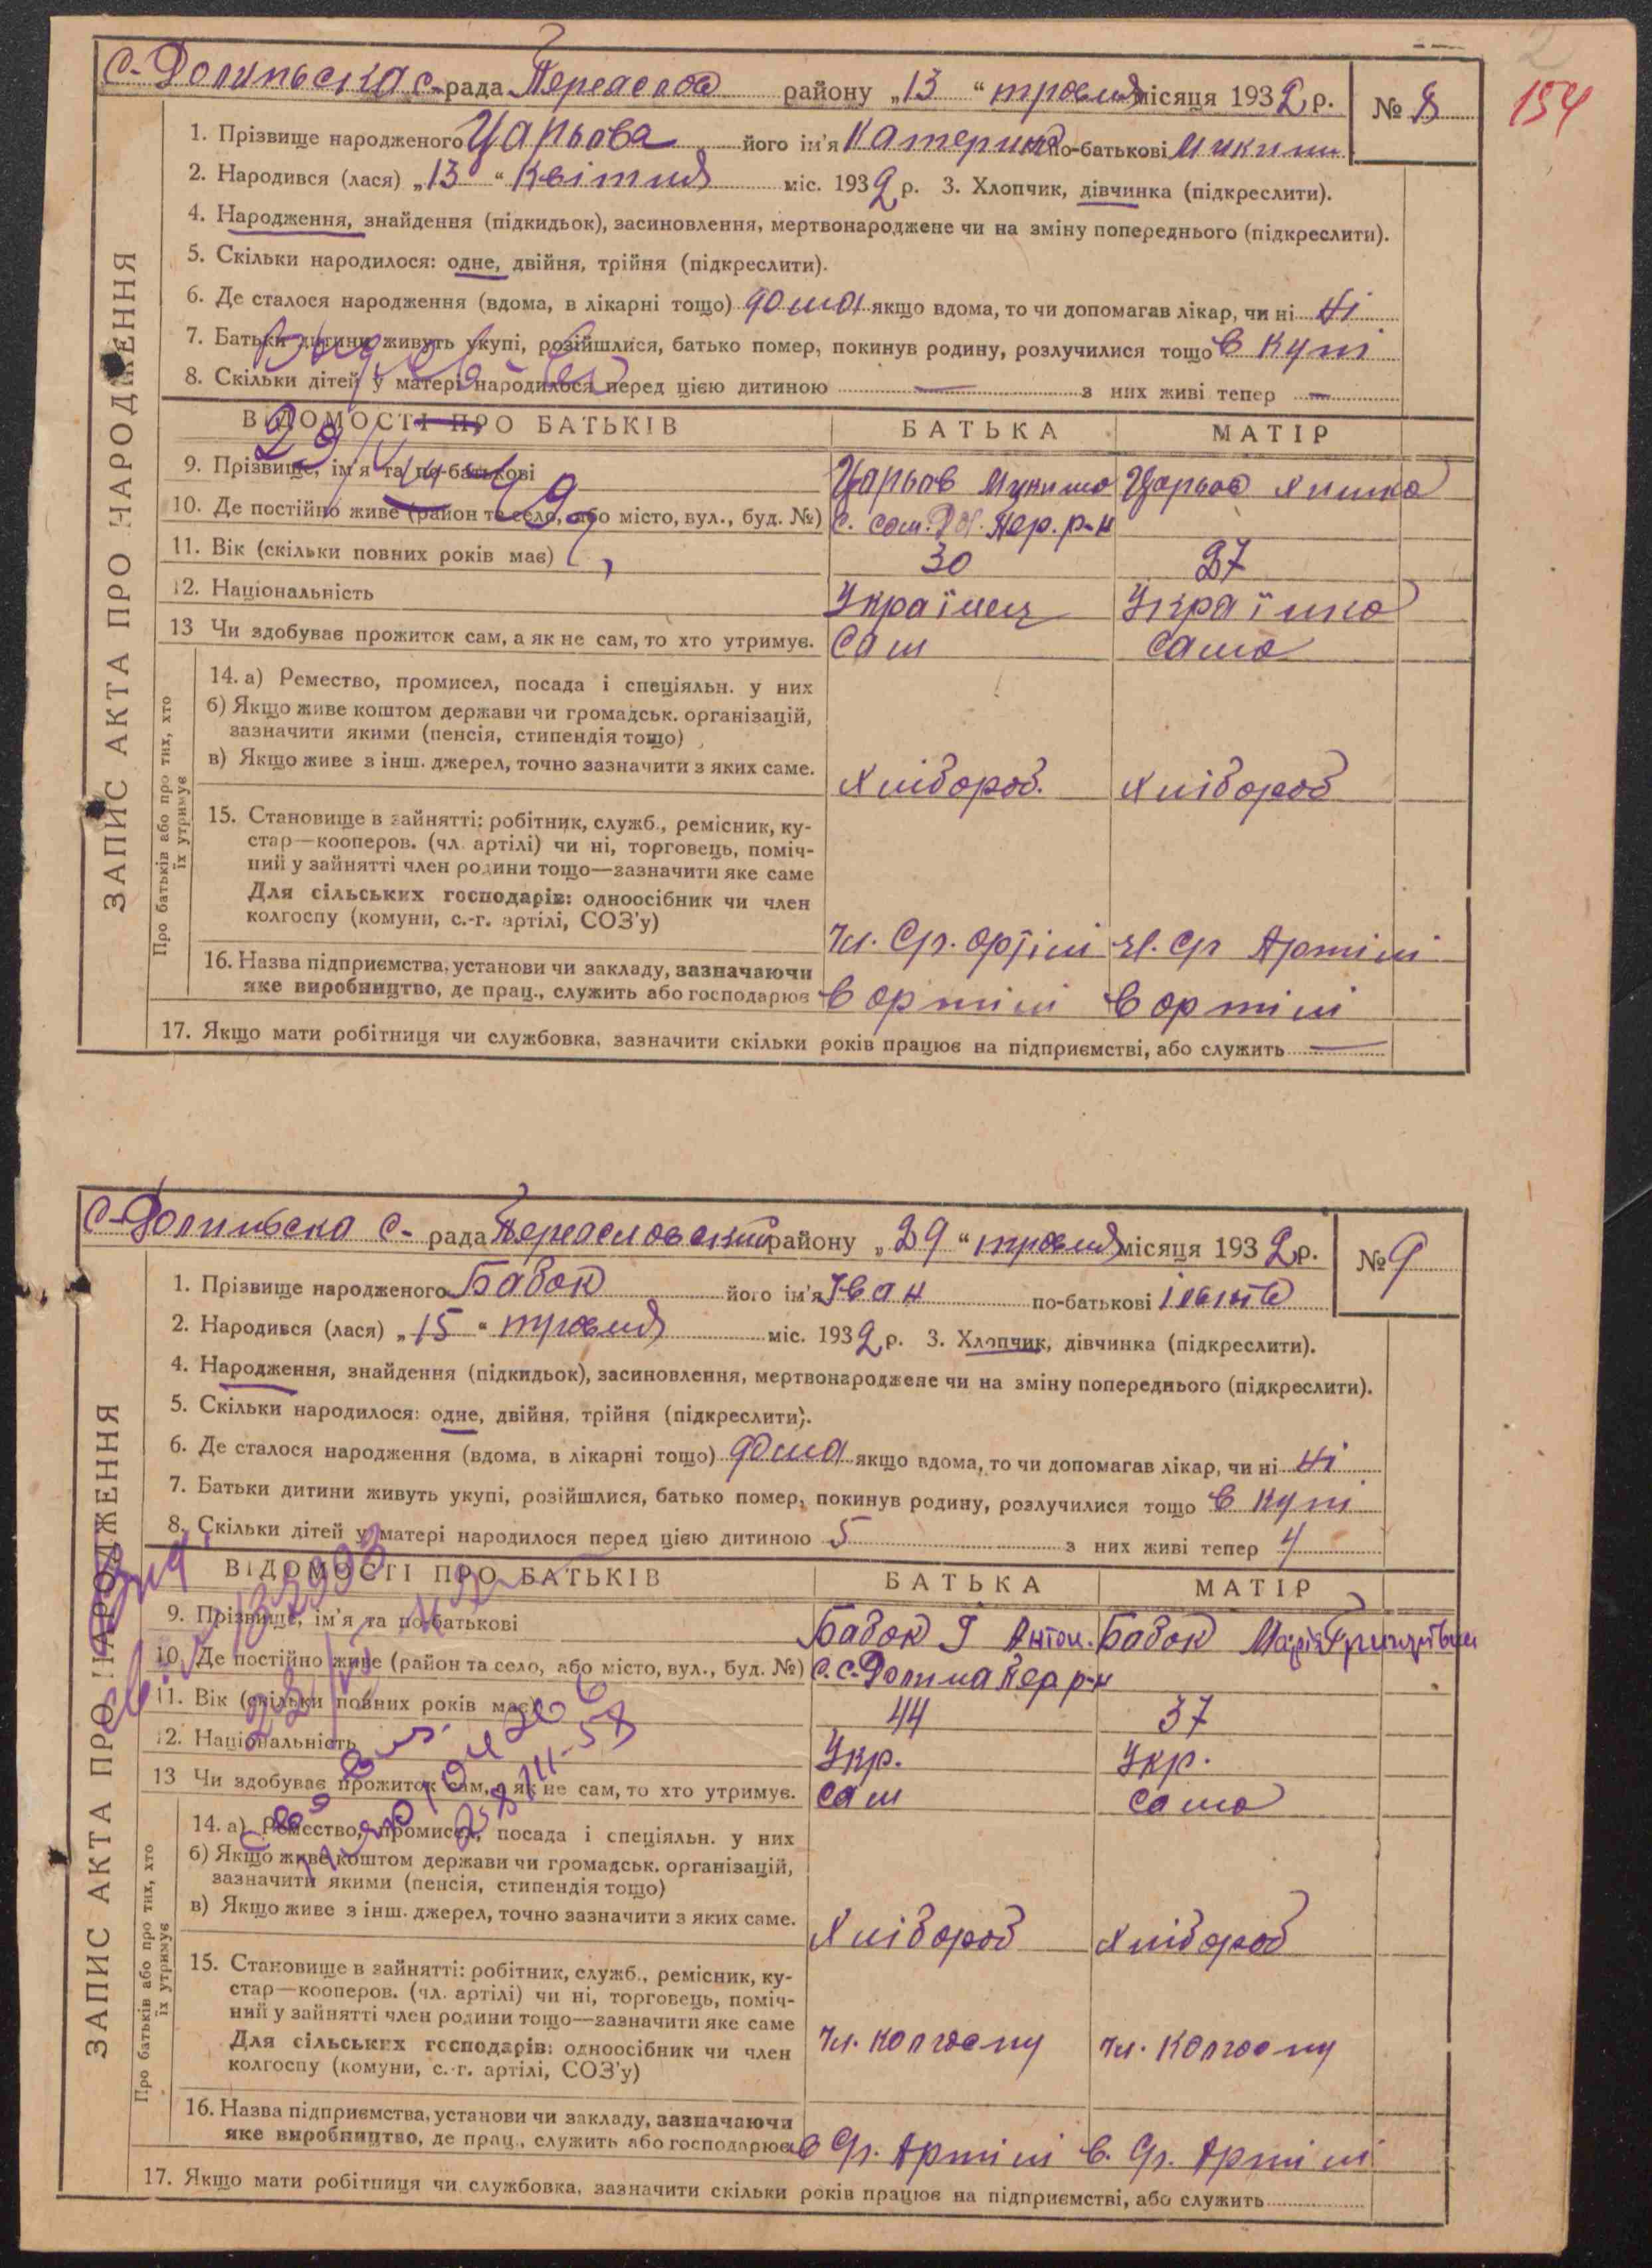 154
С. Долиньска с-рада Переаслов району „13“ травня місяця 1932 р. № 8
ЗАПИС АКТА ПРО НАРОДЖЕННЯ
1. Прізвище народженого Царьова його ім'я Катерина по-батькові Микит
2. Народився (лася) „13“ Квітня міс. 1932 р. 3. Хлопчик, дівчинка (підкреслити).
4. Народження, знайдення (підкидьок), засиновлення, мертвонароджене чи на зміну попереднього (підкреслити).
5. Скільки народилося: одне, двійня, трійня (підкреслити).
6. Де сталося народження (вдома, в лікарні тощо) дома якщо вдома, то чи допомагав лікар, чи ні Ні
7. Батьки дитини живуть укупі, розійшлися, батько помер, покинув родину, розлучилися тощо в купі
8. Скільки дітей у матері народилося перед цією дитиною — з них живі тепер —
ВІДОМОСТІ ПРО БАТЬКІВ БАТЬКА МАТІР
9. Прізвище, ім'я та по-батькові Царьов Микита Царьов
10. Де постійно живе (район та село, або місто, вул., буд. №) Пер. р-н
11. Вік (скільки повних років має) 30 27
12. Національність Українец Українка
13 Чи здобуває прожиток сам, а як не сам, то хто утримує. Сам сама
Про батьків або про тих, хто їх утримує
14. а) Ремество, промисел, посада і спеціяльн. у них
б) Якщо живе коштом держави чи громадськ. організацій,
зазначити якими (пенсія, стипендія тощо)
в) Якщо живе з інш. джерел, точно зазначити з яких саме. Хлібороб. Хлібороб
15. Становище в зайнятті: робітник, служб., ремісник, ку-
стар—кооперов. (чл. артілі) чи ні, торговець, поміч-
ний у зайнятті член родини тощо—зазначити яке саме
Для сільських господарів: одноосібник чи член
колгоспу (комуни, с.-г. артілі, СОЗ'у) Чл. Ср. артілі Чл. Ср Артілі
16. Назва підприємства, установи чи закладу, зазначаючи
яке виробництво, де прац., служить або господарює в артілі в артілі
17. Якщо мати робітниця чи службовка, зазначити скільки років працює на підприємстві, або служить —
С-Долиньска с- рада Переасловский району „29“ травня місяця 1932 р. № 9
ЗАПИС АКТА ПРО НАРОДЖЕННЯ
1. Прізвище народженого Бабок його ім'я Іван по-батькові
2. Народився (лася) „15“ травня міс. 1932 р. 3. Хлопчик, дівчинка (підкреслити).
4. Народження, знайдення (підкидьок), засиновлення, мертвонароджене чи на зміну попереднього (підкреслити).
5. Скільки народилося: одне, двійня, трійня (підкреслити).
6. Де сталося народження (вдома, в лікарні тощо) дома якщо вдома, то чи допомагав лікар, чи ні Ні
7. Батьки дитини живуть укупі, розійшлися, батько помер, покинув родину, розлучилися тощо в купі
8. Скільки дітей у матері народилося перед цією дитиною 5 з них живі тепер 4
ВІДОМОСТІ ПРО БАТЬКІВ БАТЬКА МАТІР
9. Прізвище, ім'я та по-батькові Бабок І Антон. Бабок Марія
10. Де постійно живе (район та село, або місто, вул., буд. №) С. С. Долина Пер р-н
11. Вік (скільки повних років має) 44 37
12. Національність Укр. Укр.
13 Чи здобуває прожиток сам, а як не сам, то хто утримує. Сам сама
Про батьків або про тих, хто їх утримує
14. а) Ремество, промисел, посада і спеціяльн. у них
б) Якщо живе коштом держави чи громадськ. організацій,
зазначити якими (пенсія, стипендія тощо)
в) Якщо живе з інш. джерел, точно зазначити з яких саме. Хлібороб Хлібороб
15. Становище в зайнятті: робітник, служб., ремісник, ку-
стар—кооперов. (чл. артілі) чи ні, торговець, поміч-
ний у зайнятті член родини тощо—зазначити яке саме
Для сільських господарів: одноосібник чи член
колгоспу (комуни, с.-г. артілі, СОЗ'у) Чл. колгоспу Чл. колгоспу
16. Назва підприємства, установи чи закладу, зазначаючи
яке виробництво, де прац., служить або господарює в Ср. Артілі в. Ср. Артілі
17. Якщо мати робітниця чи службовка, зазначити скільки років працює на підприємстві, або служить